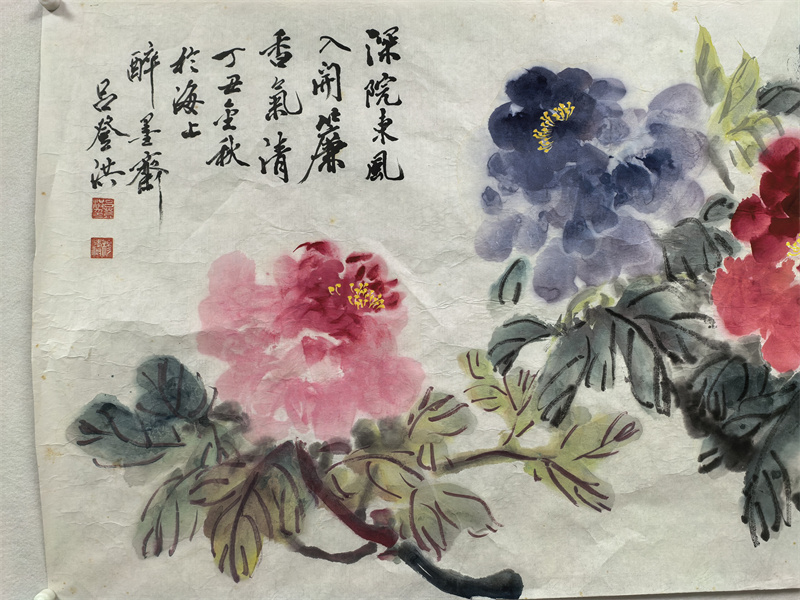 深院東風
入開簾
香氣清
丁丑金秋
於海上
醉墨齋
呂登洪